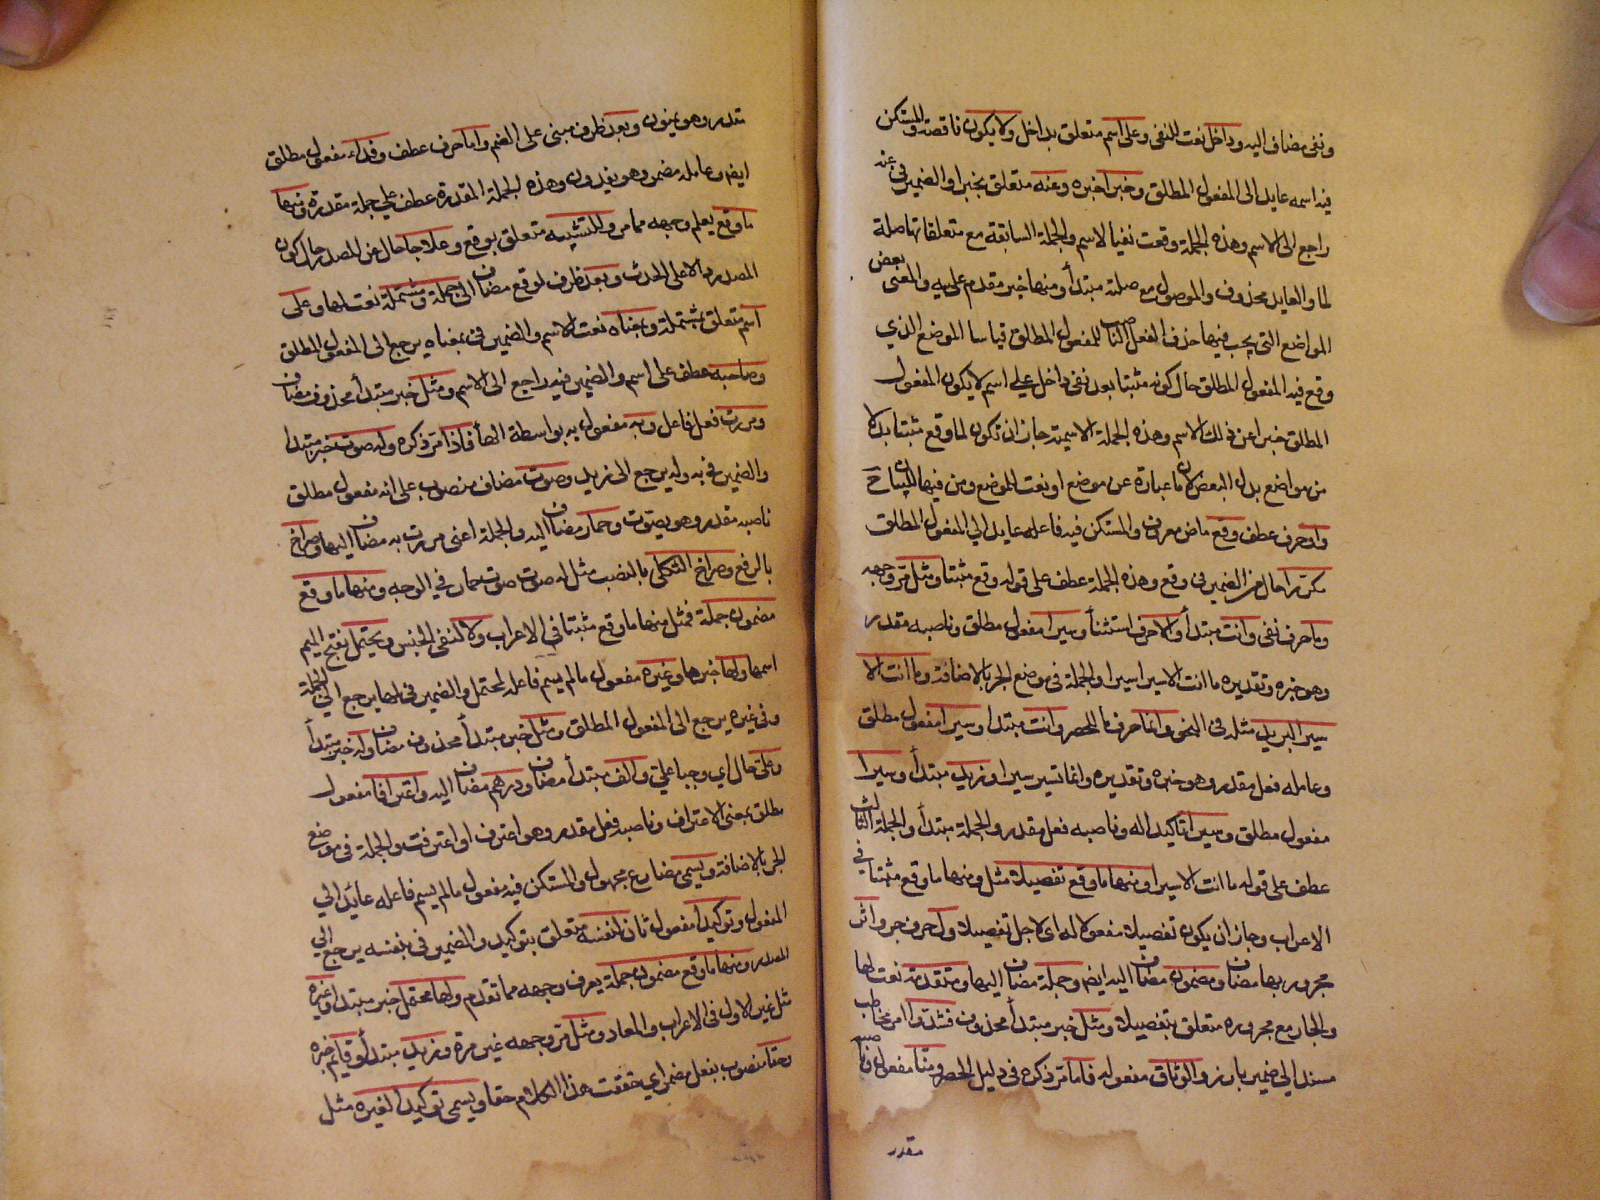 ونفى مضاف اليه وداخل نعت للنفى وعلى اسم متعلق بداخل ولا يكون ناقصة والمستكن
فيه اسمه عايد الى المفعول المطلق وخبرا خبره وعنه متعلق بخبرا والضمير في عنه
راجع الى الاسم وهذه الجملة وقعت نفيا لاسم والجملة السابقة مع متعلقاتها صلة
لما والعايد محذوف والموصول مع صلته مبتدأ ومنها خبر مقدم عليه والمعنى بعض
المواضع التي يجب فيها حذف الفعل الناصب للمفعول المطلق قياسا الموضع الذي
وقع فيه المفعول المطلق حال كونه مثبتا بعد نفى داخل على اسم لا يكون المفعول
المطلق خبرا عن ذلك الاسم وهذه الجملة الاسمية جاز ان تكون لما وقع مثبتا بدلا
من مواضع بدل البعض لان ما عبارة عن موضع او نعت للموضع ومن فيها للبيان ح
واو حرف عطف وقع ماض معروف والمستكن فيه فاعله عايد الى المفعول المطلق
مكررا حال من الضمير في وقع وهذه الجملة عطف على قوله وقع مثبتا ومثل مر وجهه
وما حرف نفى وانت مبتدأ والا حرف استثنا وسيرا مفعول مطلق وناصبه مقدر
وهو خبره وتقديره ما انت الا تسير سيرا والجملة في موضع الجر بالاضافة وما انت الا
سير البريد مثله في النحو وانما حرف للحصر وانت مبتدا وسيرا مفعول مطلق
وعامله فعل مقدر وهو خبره وتقديره وانما تسير سيرا وزيد مبتدأ وسيرا
مفعول مطلق وسيرا تاكيدا له وناصبه فعل مقدر والجملة مبتدأ والجملة الثالث
عطف على قوله ما انت الا سيرا ومنها ما وقع تفصيلا مثل ومنها ما وقع مثبتا في
الاعراب وجاز ان يكون تفصيلا مفعولا له اى لاجل تفصيلا ولـ حرف جر واثر
مجرور بها مضاف ومضمون مضاف اليه ايضا وجملة مضاف اليها ومتقدمة نعت لها
والجار مع مجروره متعلق بتفصيلا ومثل خبر مبتدأ محذوف فشدوا امر مخاطب
مسند الى ضمير بارز والوثاق مفعوله فاما مر ذكره في دليل الحصر ومنا مفعول ناصبه
مقدر
مقدر وهو تمنون وبعد ظرف مبنى على الضم واما حرف عطف وفداء مفعول مطلق
ايضا وعامله مضمر وهو تفدون وهذه الجملة المقدرة عطف على جملة مقدرة ومنها
ما وقع يعلم وجهه مما مر وللتشبيه متعلق بوقع وعلاجا حال عن المصدر حال كون
المصدر دالا على الحدث وبعد ظرف لوقع مضاف الى جملة ومشتملة نعت لها وعلى
اسم متعلق بمشتملة وبمعناه نعت لاسم والضمير في بمعناه يرجع الى المفعول المطلق
وصاحبه عطف على اسم والضمير فيه راجع الى الاسم ومثل خبر مبتدأ محذوف مضاف
ومررت فعل فاعل وبه مفعول به بواسطة الباء فاذا مر ذكره وله صوت خبر مبتدا
والضمير في به وله يرجع الى زيد وصوت مضاف منصوب على انه مفعول مطلق
ناصبه مقدر وهو يصوت وحمار مضاف اليه والجملة اعنى مررت به مضاف اليها وصراخ
بالرفع وصراخ الثكلى بالنصب مثل له صوت صوت حمار في الوجه ومنها ما وقع
مضمون جملة فمثل منها ما وقع مثبتا في الاعراب ولا لنفى الجنس ومحتمل بفتح الميم
اسمها ولها خبرها وغيره مفعول ما لم يسم فاعله لمحتمل والضمير في لها يرجع الى الجملة
وفي غيره يرجع الى المفعول المطلق ومثل خبر مبتدأ محذوف مضاف وله خبر مبتدأ
وعلى حال اي وجبا على والف مبتدأ مضاف ودرهم مضاف اليه واعترافا مفعول
مطلق بمعنى الاعتراف وناصبه فعل مقدر وهو اعترف او اعترفت والجملة في موضع
الجر بالاضافة ويسمى مضارع مجهول والمستكن فيه مفعول ما لم يسم فاعله عايد الى
المفعول وتوكيدا مفعول ثان لنفسه متعلق بتوكيد والضمير في بنفسه يرجع الى
المصدر ومنها ما وقع مضمون جملة يعرف وجهه مما تقدم ولها محتمل خبر مبتدا وغيره
مثل غير الاول في الاعراب والمعاد ومثل مر وجهه غير مرة وزيد مبتدأ وقايم خبره
وحقا منصوب بفعل مضمر اي حققت هذا الكلام حقا ويسمى توكيدا لغيره مثل